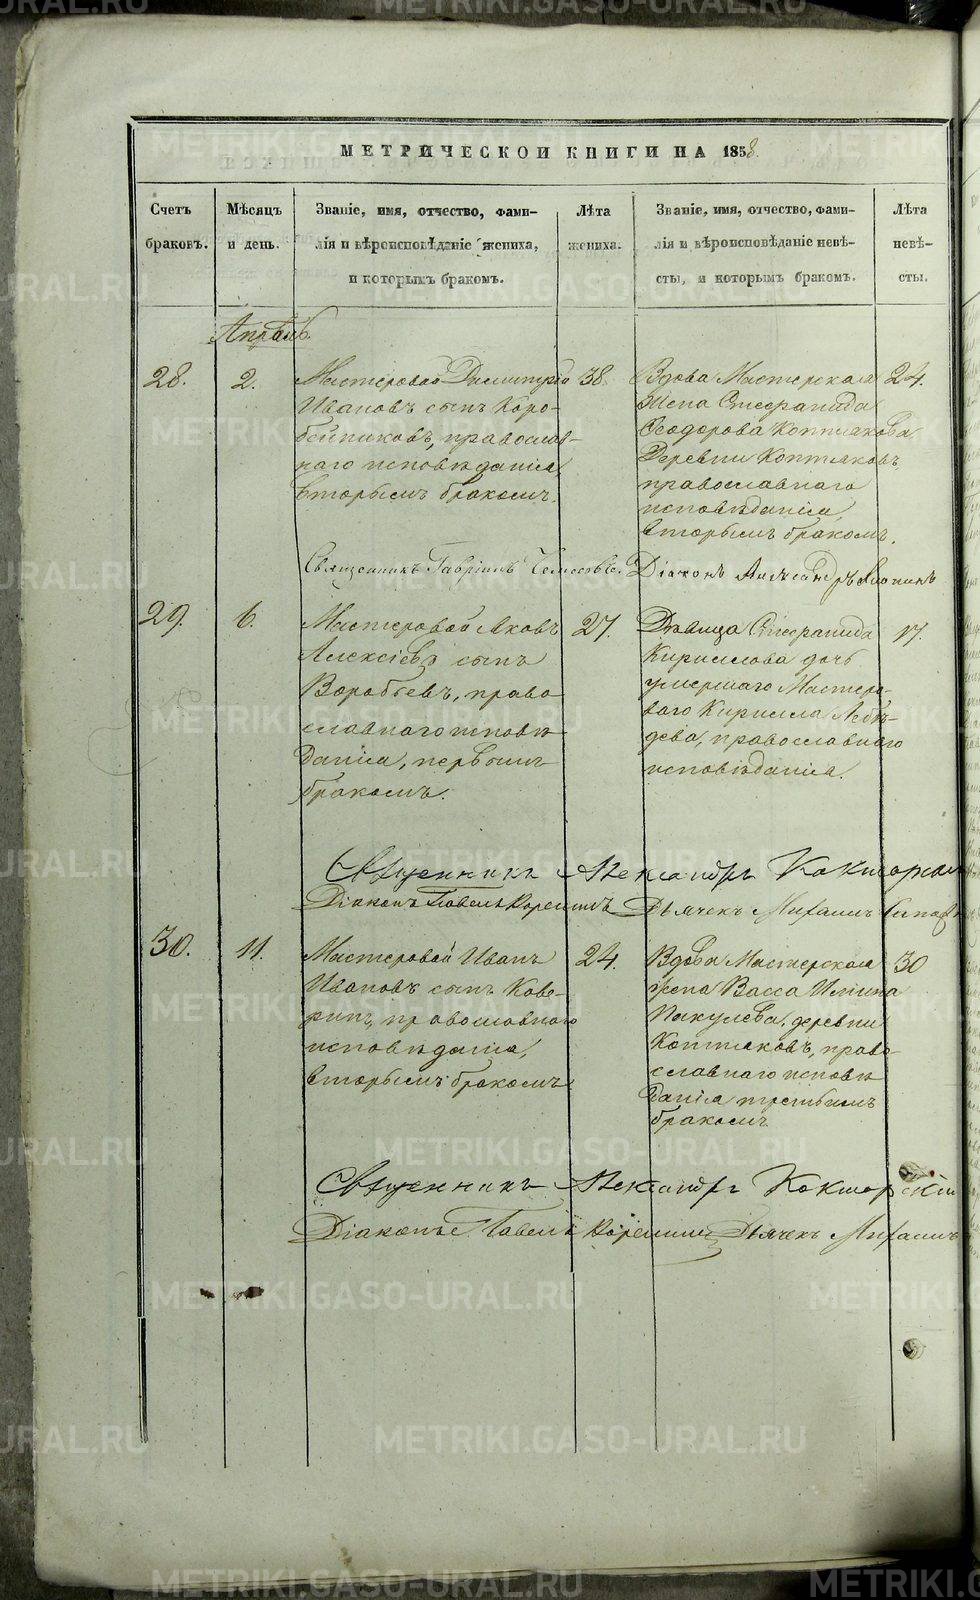 МЕТРИЧЕСКОЙ КНИГИ НА 1858.
Счетъ браковъ.
Мѣсяцъ и день.
Званіе, имя, отчество, фами-
лія и вѣроисповѣданіе жениха,
и которымъ бракомъ.
Лѣта жениха.
Званіе, имя, отчество, фами-
лія и вѣроисповѣданіе невѣ-
сты, и которымъ бракомъ.
Лѣта невѣ-
сты.
Апрѣль.
28.
2.
Мастеровой Димитрій
Ивановъ сынъ Коро-
бейниковъ, православ-
наго исповѣданія,
вторымъ бракомъ.
38.
Вдова Мастерская
жена Стефанида
Ѳеодорова Коптякова
Деревни Коптяковъ,
православнаго
исповѣданія,
вторымъ бракомъ.
24.
Священникъ Гавріилъ
Діаконъ Александръ
29.
6.
Мастеровой Яковъ
Алексіевъ сынъ
Воробьевъ, право-
славнаго исповѣ-
данія, первымъ
бракомъ.
27.
Дѣвица Стефанида
Кириллова дочь
умершаго Мастеро-
ваго Кирилла Лебѣ-
дева, православнаго
исповѣданія.
17.
Священникъ Александръ
Діаконъ Павелъ Дьячекъ Михаилъ
30.
11.
Мастеровой Иванъ
Ивановъ сынъ Кове-
ринъ, православнаго
исповѣданія,
вторымъ бракомъ
24.
Вдова Мастерская
жена Васса Ильина
Пакулева, деревни
Коптяковъ, право-
славнаго исповѣ-
данія третьимъ
бракомъ.
30
Священникъ Александръ
Діаконъ Павелъ Дьячекъ Михаилъ
METRIKI.GASO-URAL.RU